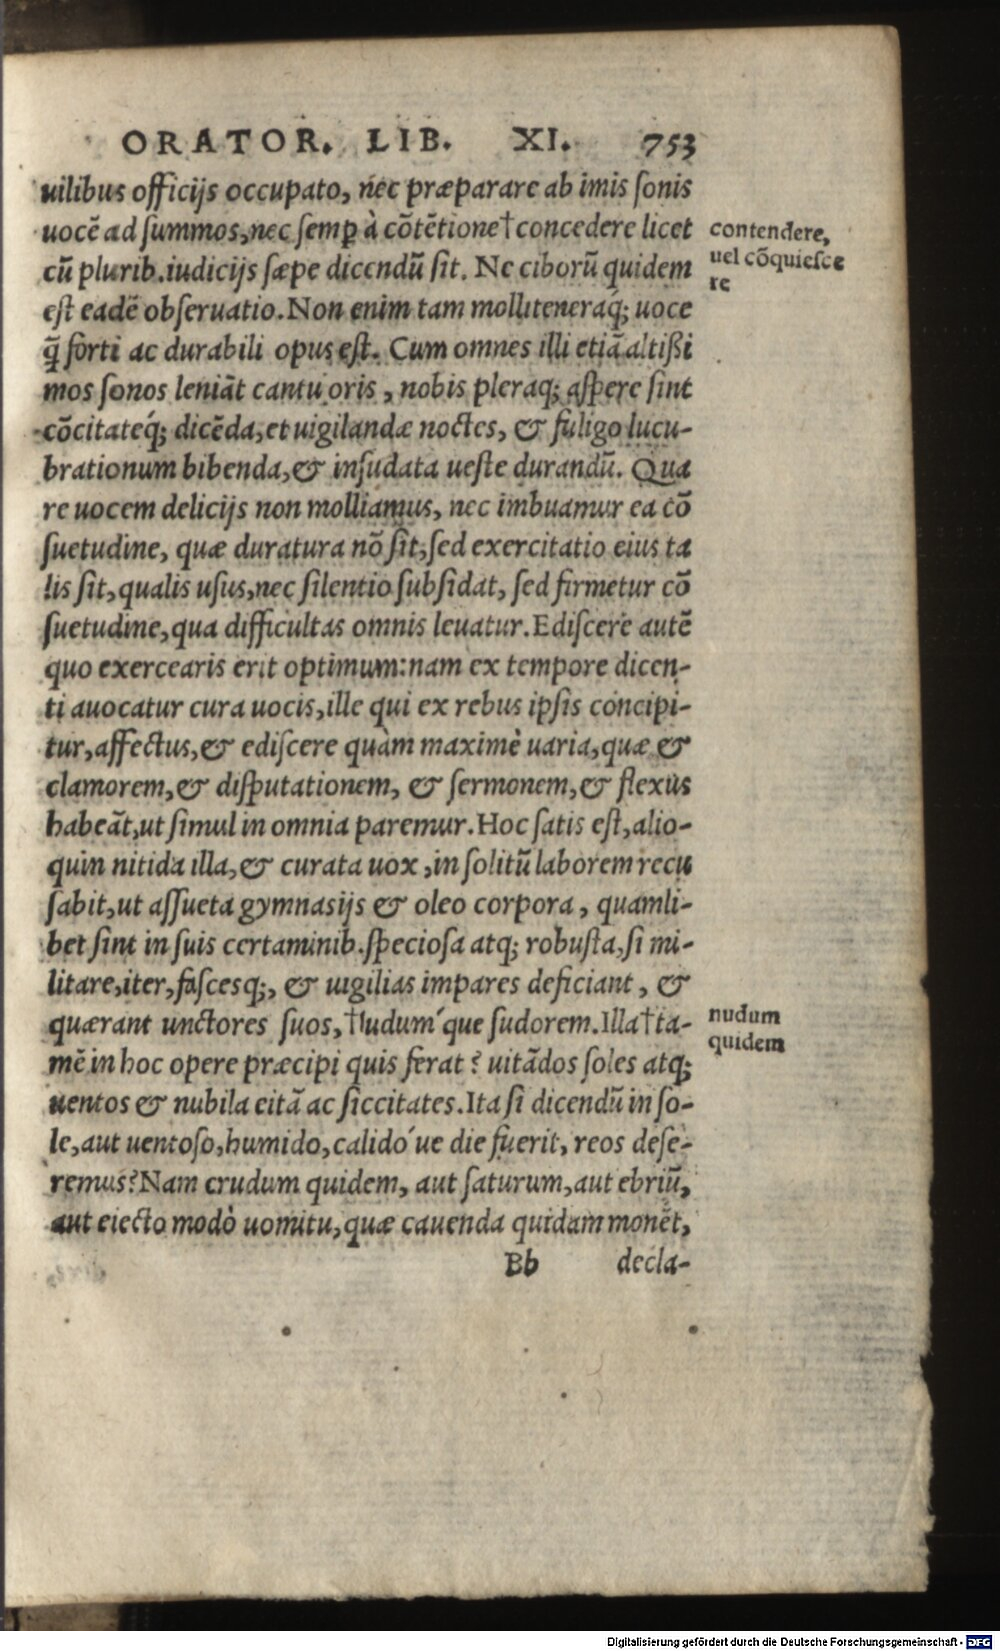 ORATOR. LIB. XI. 753
uilibus officijs occupato, nec præparare ab imis ſonis
uocē ad ſummos, nec ſemꝑ à cōtētione†concedere licet
contendere,
uel cōquieſce
re
cū plurib. iudicijs ſæpe dicendū ſit. Ne ciborū quidem
eſt eadē obſeruatio. Non enim tam molli teneraq́; uoce
q̄ forti ac durabili opus eſt. Cum omnes illi etiā altißi
mos ſonos leniāt cantu oris, nobis pleraq; aſpere ſint
cōcitateq́; dicēda, et uigilandæ noctes, & fuligo lucu-
brationum bibenda, & inſudata ueſte durandū. Qua
re uocem delicijs non molliamus, nec imbuamur ea cō
ſuetudine, quæ duratura nō ſit, ſed exercitatio eius ta
lis ſit, qualis uſus, nec ſilentio ſubſidat, ſed firmetur cō
ſuetudine, qua difficultas omnis leuatur. Ediſcere autē
quo exercearis erit optimum: nam ex tempore dicen-
ti auocatur cura uocis, ille qui ex rebus ipſis concipi-
tur, affectus, & ediſcere quàm maximè uaria, quæ &
clamorem, & diſputationem, & ſermonem, & flexus
habeāt, ut ſimul in omnia paremur. Hoc ſatis eſt, alio-
quin nitida illa, & curata uox, in ſolitū laborem recu
ſabit, ut aſſueta gymnasijs & oleo corpora, quamli-
bet ſint in ſuis certaminib. ſpecioſa atq; robuſta, ſi mi-
litare, iter, faſcesq;, & uigilias impares deficiant, &
quærant unctores ſuos, †ludum´que ſudorem. Illa†ta-
nudum
quidem
mē in hoc opere præcipi quis ferat? uitādos ſoles atq;
uentos & nubila eitā ac ſiccitates. Ita ſi dicendū in ſo-
le, aut uentoſo, humido, calido´ue die fuerit, reos deſe-
remus? Nam crudum quidem, aut ſaturum, aut ebriū,
aut eiecto modò uomitu, quæ cauenda quidam monēt,
Bb decla-
Digitalisierung gefördert durch die Deutsche Forschungsgemeinschaft - DFG